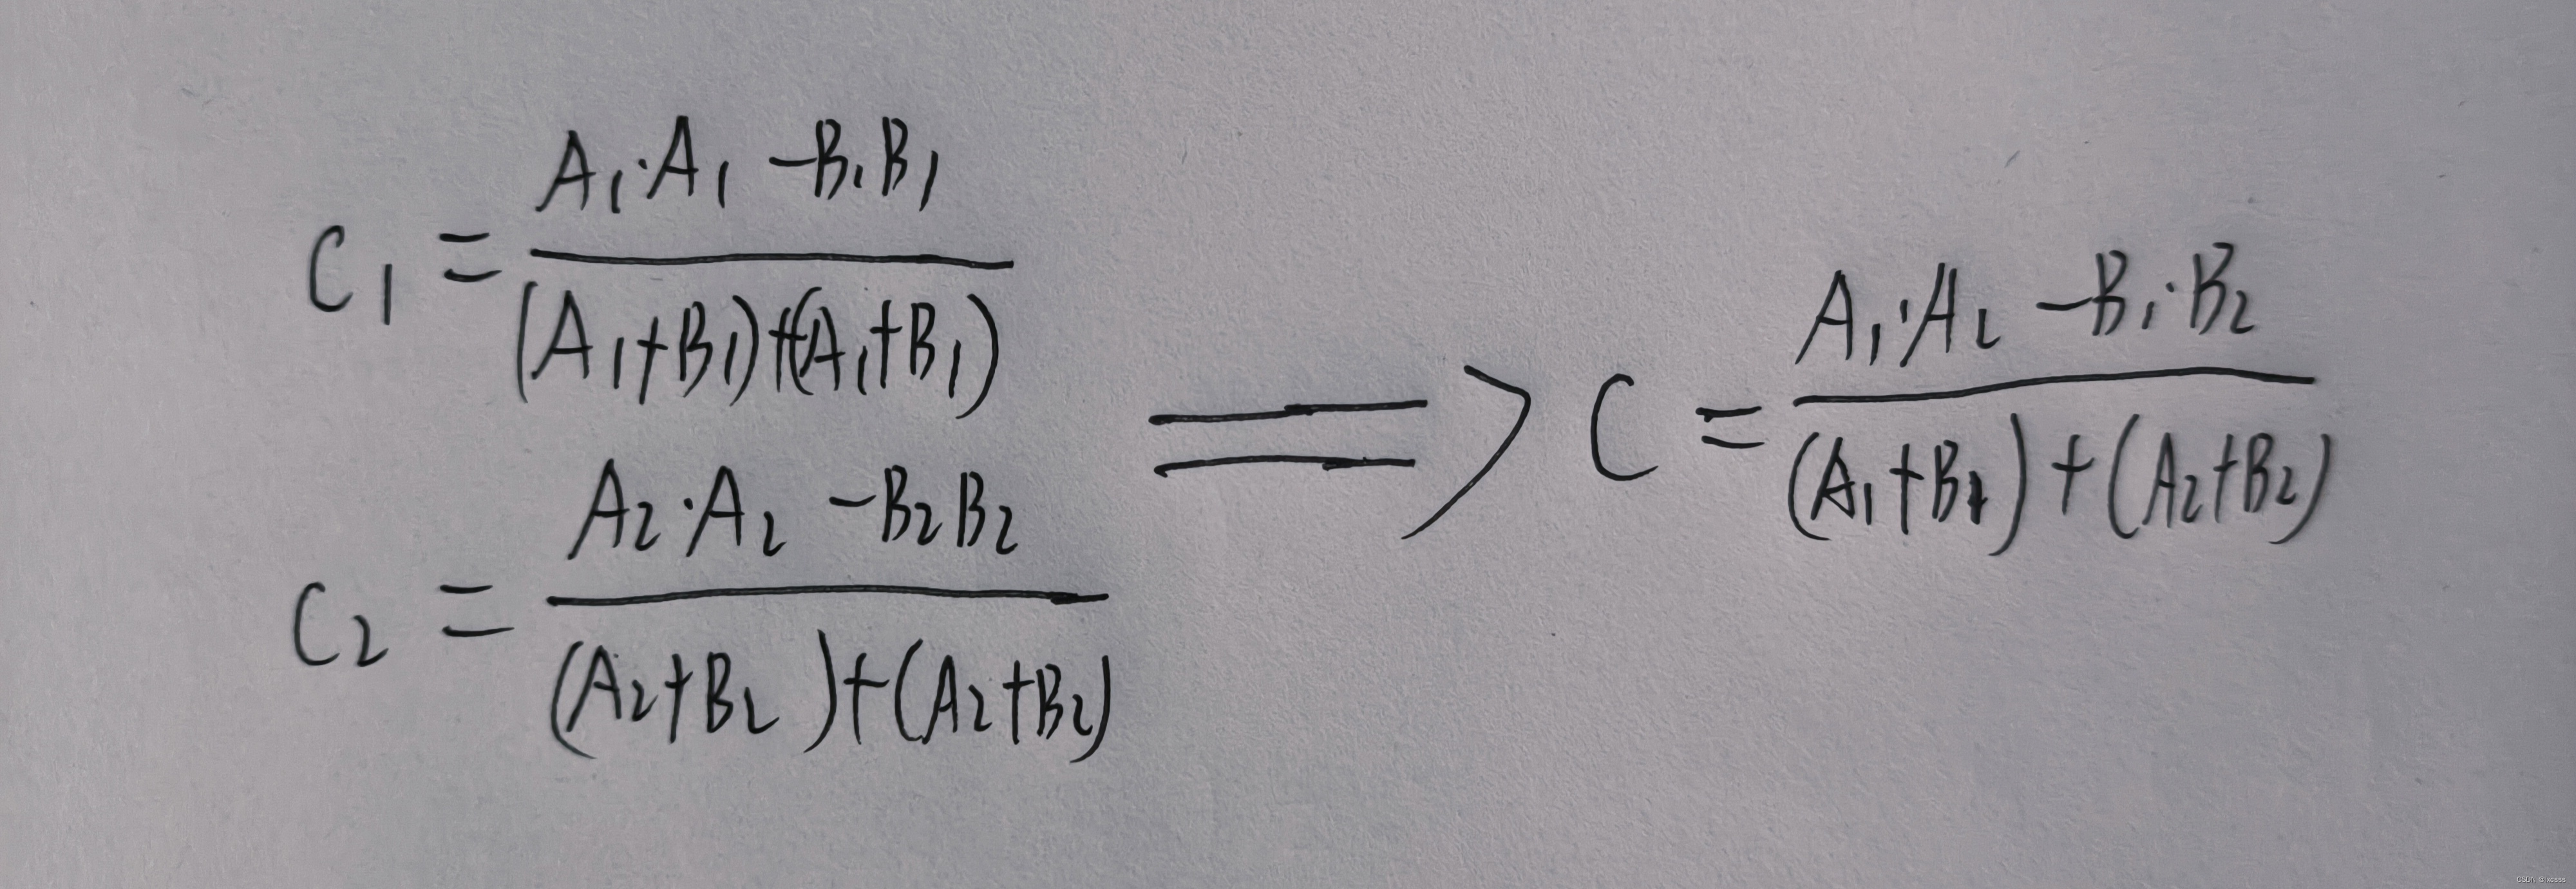 C₁ = (A₁·A₁ - B₁B₁) / ((A₁+B₁)+(A₁+B₁))
C₂ = (A₂·A₂ - B₂B₂) / ((A₂+B₂)+(A₂+B₂))
=> C = (A₁·A₂ - B₁·B₂) / ((A₁+B₁)+(A₂+B₂))